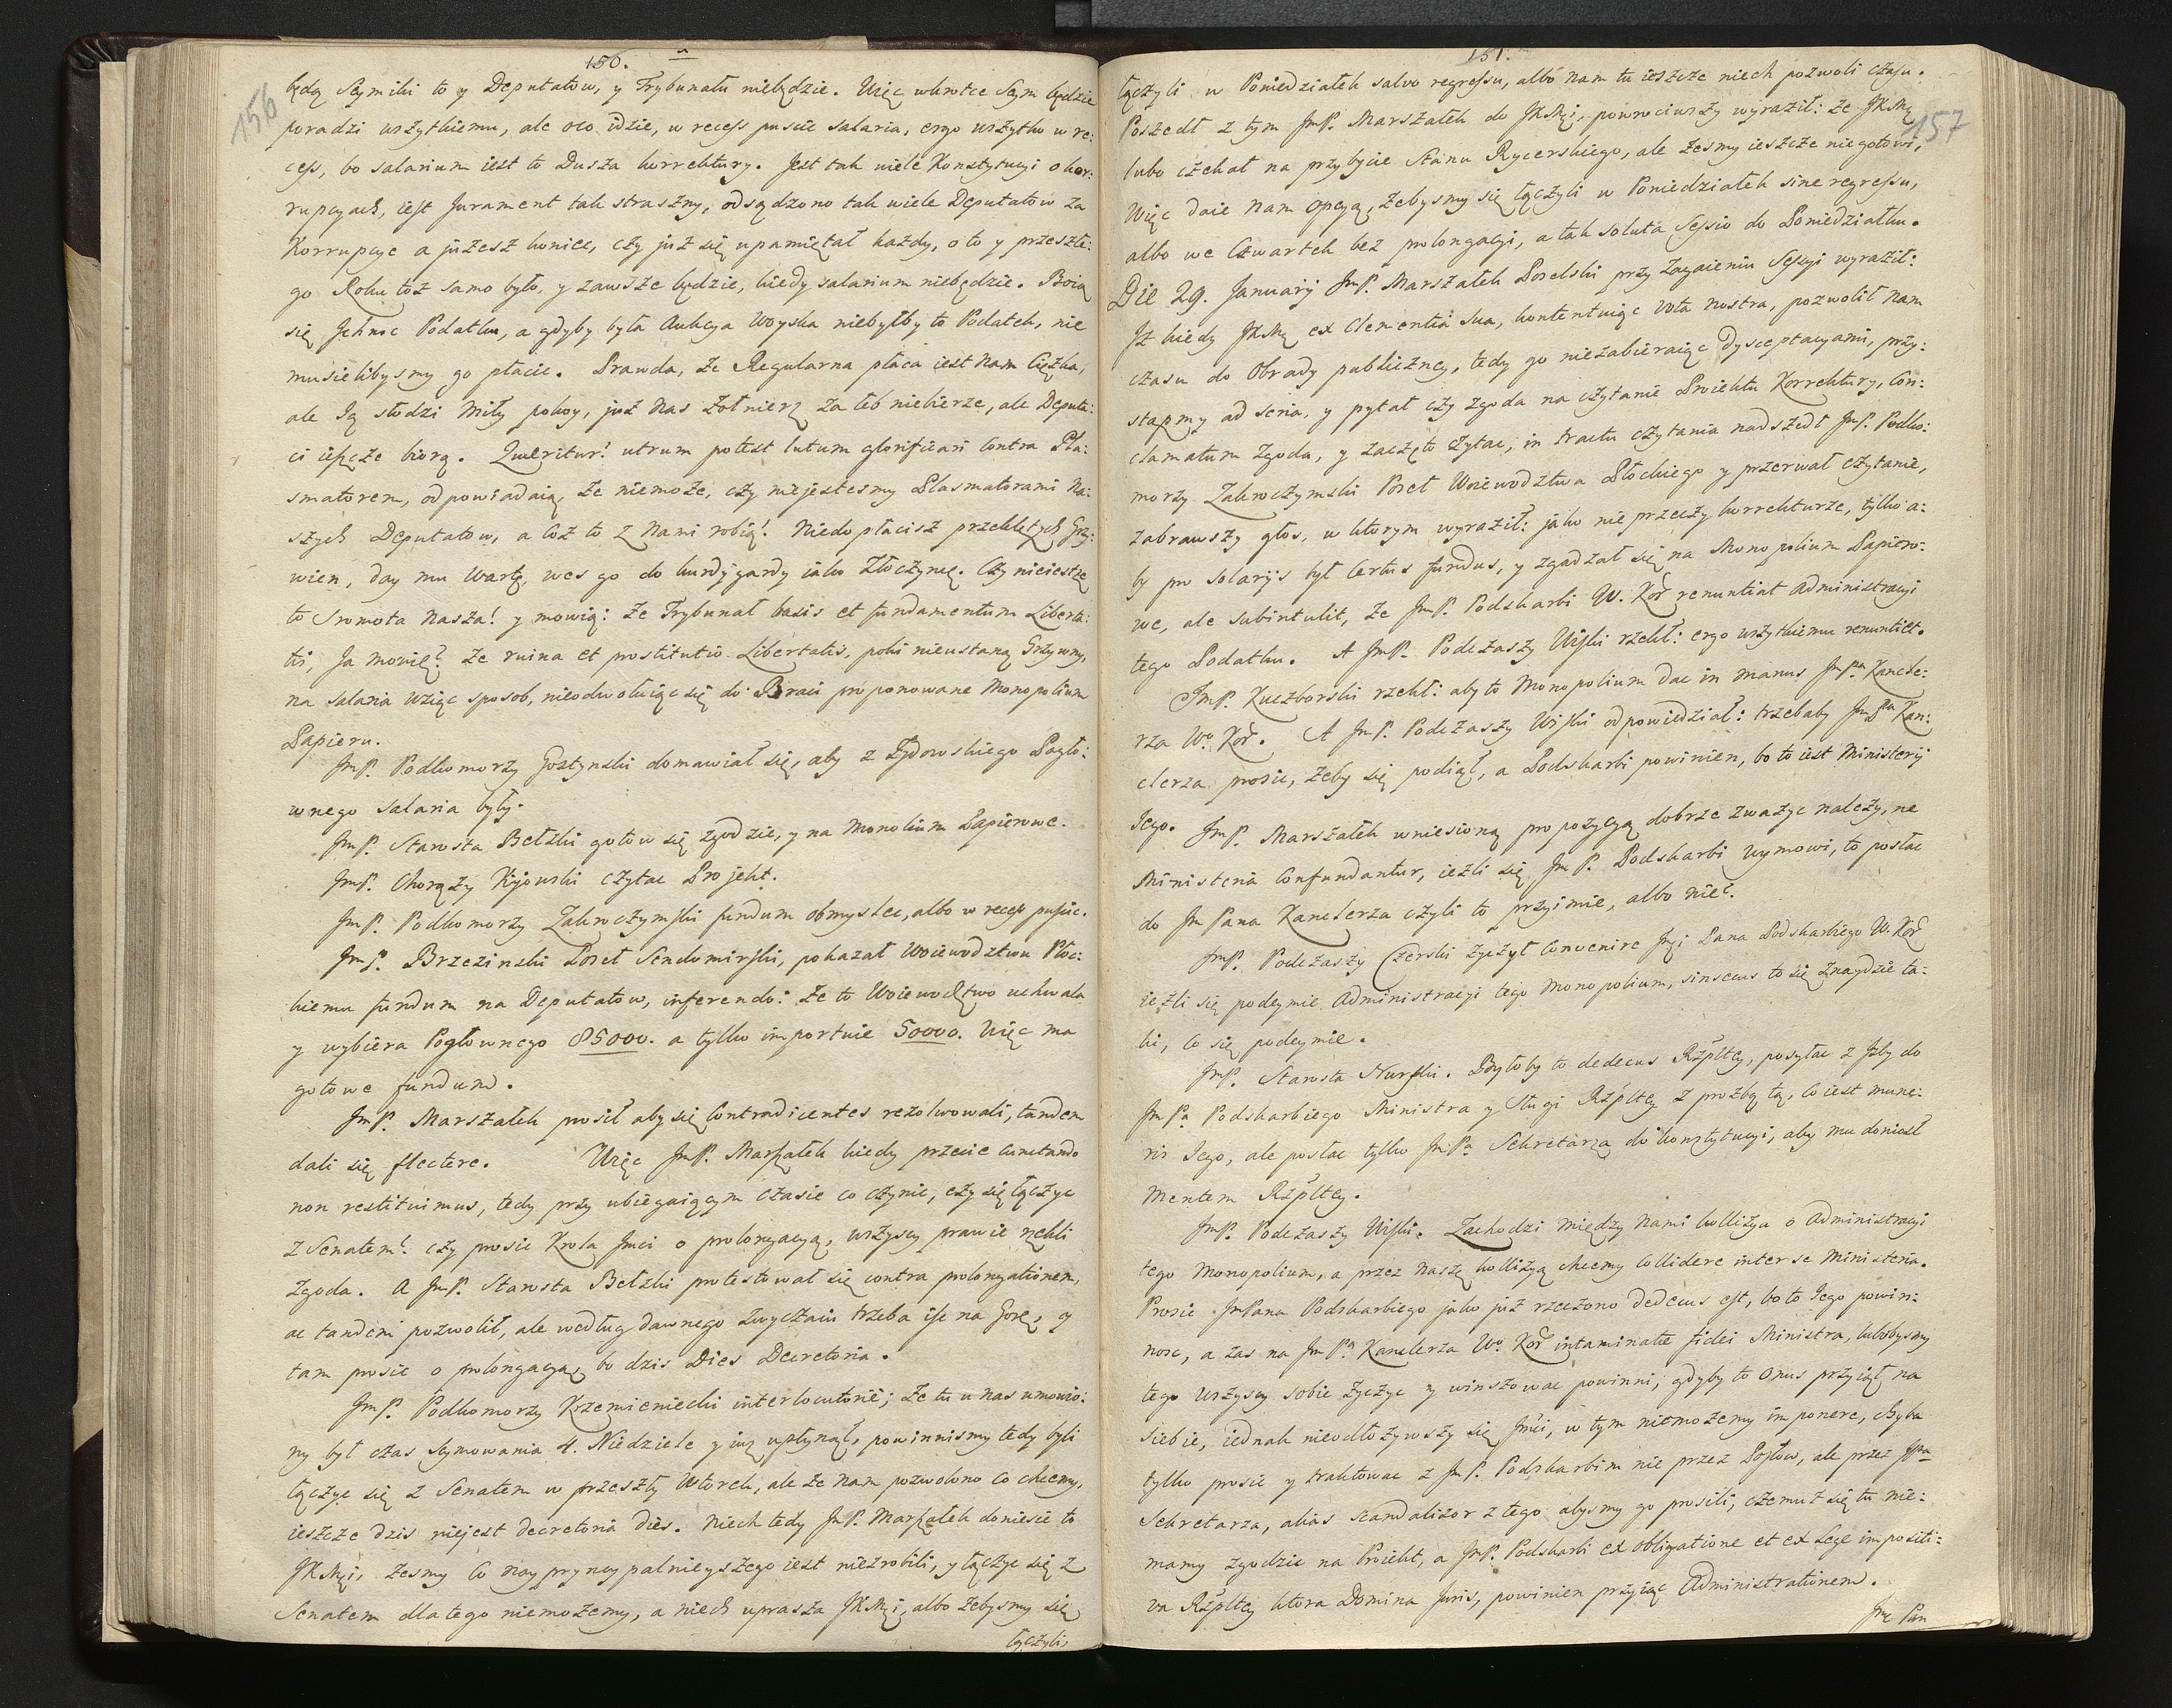 150.
156
będą Seymiki to y Deputatow, y Trybunału niebędzie. Więc wkrotce Seym będzie
poradzi wszytkiemu, ale oco idzie, w recess puscic salaria, ergo wszytko w re:
cess, bo salarium iest to Dusza korrektury. Jest tak wiele Konstytucyi o kor:
rupcyach, iest Jurament tak straszny, odsądzono tak wiele Deputatow za
Korrupcye a juzesz koniec, czy już się upamiętał każdy, oto y przeszłe:
go Roku toż samo było, y zawsze będzie, kiedy salarium niebędzie. Boią
się Ichmc Podatku, a gdyby była Aukcya Woyska niebyłby to Podatek, nie
musielibysmy go płacic. Prawda, że Regularna płaca iest nam Ciężka,
ale Ją słodzi miły pokoy, już nas żołnierz za łeb niebierze, ale Deputa:
ci ieszcze biorą. Quaeritur! utrum potest lutum glorificari contra Pla:
smatorem, odpowiadaią, że niemoże, czy niejestesmy Plasmatorami Na:
szych Deputatow, a Coż to z Nami robią! Niedopłacisz przeklętych Grzy:
wien, day mu wartę, wes go do kurdygardy iako Złoczyncę. Czy nieiestże
to Sromota Nasza! y mowią: że Trybunał basis et fundamentum Liberta:
tis, Ja mowię! że ruina et prostitutio Libertatis, poki nieustaną Grzywny,
na salaria wziąc sposob, nieodwołuiąc się do Braci proponowane Monopolium
Papieru.
JmP. Podkomorzy Gostynski domawiał się, aby z Żydowskiego Pogło:
wnego salaria były.
JmP. Starosta Bełzki gotow się zgodzic, y na Monolium Papierowe.
JmP. Chorąży Kijowski czytac Projekt.
JmP. Podkomorzy Zakroczymski fundum obmyslec, albo w recess puscic.
JmP. Brzezinski Poseł Sendomirski, pokazał Woiewodztwu Płoc:
kiemu fundum na Deputatow, inferendo: że to Woiewodztwo uchwala
y wybiera Pogłownego 85000. a tylko importuie 50000. Więc ma
gotowe fundum.
JmP. Marszałek prosił aby się Contradicentes rezolwowali, tandem
dali się flectere. Więc JmP. Marszałek kiedy przecie cunctando
non restituimus, tedy przy ubiegaiącym czasie co czynic, czy się łączyc
z Senatem! czy prosic Krola Jmci o prolongacyą, wszyscy prawie rzekli
Zgoda. A JmP. Starosta Bełzki protestował się contra prolongationem,
ac tandem pozwolił, ale według dawnego zwyczaiu trzeba isc na Gorę, y
tam prosic o prolongacyą, bo dzis Dies Decretoria.
JmP. Podkomorzy Krzemieniecki interlocutorie; że tu u nas umowio:
ny był czas Seymowania 4. Niedziele y iuż upłynął, powinnismy tedy byli
łączyc się z Senatem w przeszły Wtorek, ale że nam pozwolono co chcemy,
ieszcze dzis niejest decretoria dies. Niech tedy JmP. Marszałek doniesie to
JKMci, żesmy Co naypryncypalnieyszego iest niezrobili, y łączyc się z
Senatem dlatego niemożemy, a niech uprasza JKMci, albo żebysmy się
łączyli,
151.
157
łączyli w Poniedziałek salvo regressu, albo nam tu ieszcze niech pozwoli czasu.
Poszedł z tym JmP. Marszałek do JKMci, powrociwszy wyraził: że JKMc
lubo czekał na przybycie Stanu Rycerskiego, ale żesmy ieszcze niegotowi,
Więc daie nam opcyą, żebysmy się łączyli w Poniedziałek sine regressu,
albo we Czwartek bez prolongacyi, a tak soluta Sessio do Poniedziałku.
Die 29. Januarij JmP. Marszałek Poselski przy Zagaieniu Sessyi wyraził:
Iż kiedy JKMc ex Clementia sua, kontentuiąc vota nostra, pozwolił nam
czasu do Obrady publiczney, tedy go niezabieraiąc dysceptacyami, przy:
stąpmy ad seria, y pytał czy zgoda na czytanie Proiektu Korrektury, Con:
clamatum Zgoda, y zaczęto czytac, in tractu czytania nadszedł JmP. Podko:
morzy Zakroczymski Poseł Woiewodztwa Płockiego y przerwał czytanie,
zabrawszy głos, w ktorym wyraził: jako nie przeczy korrekturze, tylko a:
by pro solarijs był Certus fundus, y zgadzał się na Monopolium Papiero:
we, ale subintulit, że JmP. Podskarbi W. Kor renuntiat Administracyi
tego Podatku. A JmP. Podczaszy Wiski rzekł: ergo wszytkiemu renuntiet.
JmP. Kuczborski rzekł: aby to Monopolium dac in manus JmPa Kancle:
rza Wo Kor. A JmP. Podczaszy Wiski odpowiedział: trzebaby JmPa Kan:
clerza prosic, żeby się podiął, a Podskarbi powinien, bo to iest Ministerij
Jego. JmP. Marszałek wniesioną propozycyą dobrze zważyc należy, ne
Ministeria Confundantur, ieżli się JmP. Podskarbi wymowi, to posłac
do JmPana Kanclerza czyli to przyimie, albo nie?
JmP. Podczaszy Czerski życzył Convenire Jmci Pana Podskarbiego W. Kor
ieżli się podeymie Administracyi tego Monopolium, sinsecus to się znaydzie ta:
ki, co się podeymie.
JmP. Starosta Nurski. Byłoby to dedecus Rzpltey, posyłac z Izby do
JmPa Podskarbiego Ministra y Sługi Rzpltey z prozbą tą, Co iest mune:
ris Jego, ale posłac tylko JmPa Sekretarza do konstytucyi, aby mu doniosł
mentem Rzpltey.
JmP. Podczaszy Wiski. Zachodzi między nami kollizya o Administracyi
tego Monopolium, a przez naszę kollizyą chcemy Collidere inter se Ministeria.
Prosic JmPana Podskarbiego jako już rzeczono dedecus est, bo to Jego powin:
nosc, a zas na JmPa Kanclerza Wo Kor intaminatae fidei Ministra, lubobysmy
tego wszyscy sobie życzyc y winszowac powinni, gdyby to onus przyiął na
siebie, iednak nieodłożywszy się Jmci, w tym niemożemy imponere, chyba
tylko prosic y traktowac z JmP. Podskarbim nie przez Posłow, ale przez JPa
Sekretarza, alias scandalizor z tego abysmy go prosili, czemuż się tu nie:
mamy zgodzic na Proiekt, a JmP. Podskarbi ex obligatione et ex Lege impositi:
va Rzpltey ktora Domina Juris, powinien przyiąc Administrationem.
Jmc Pan